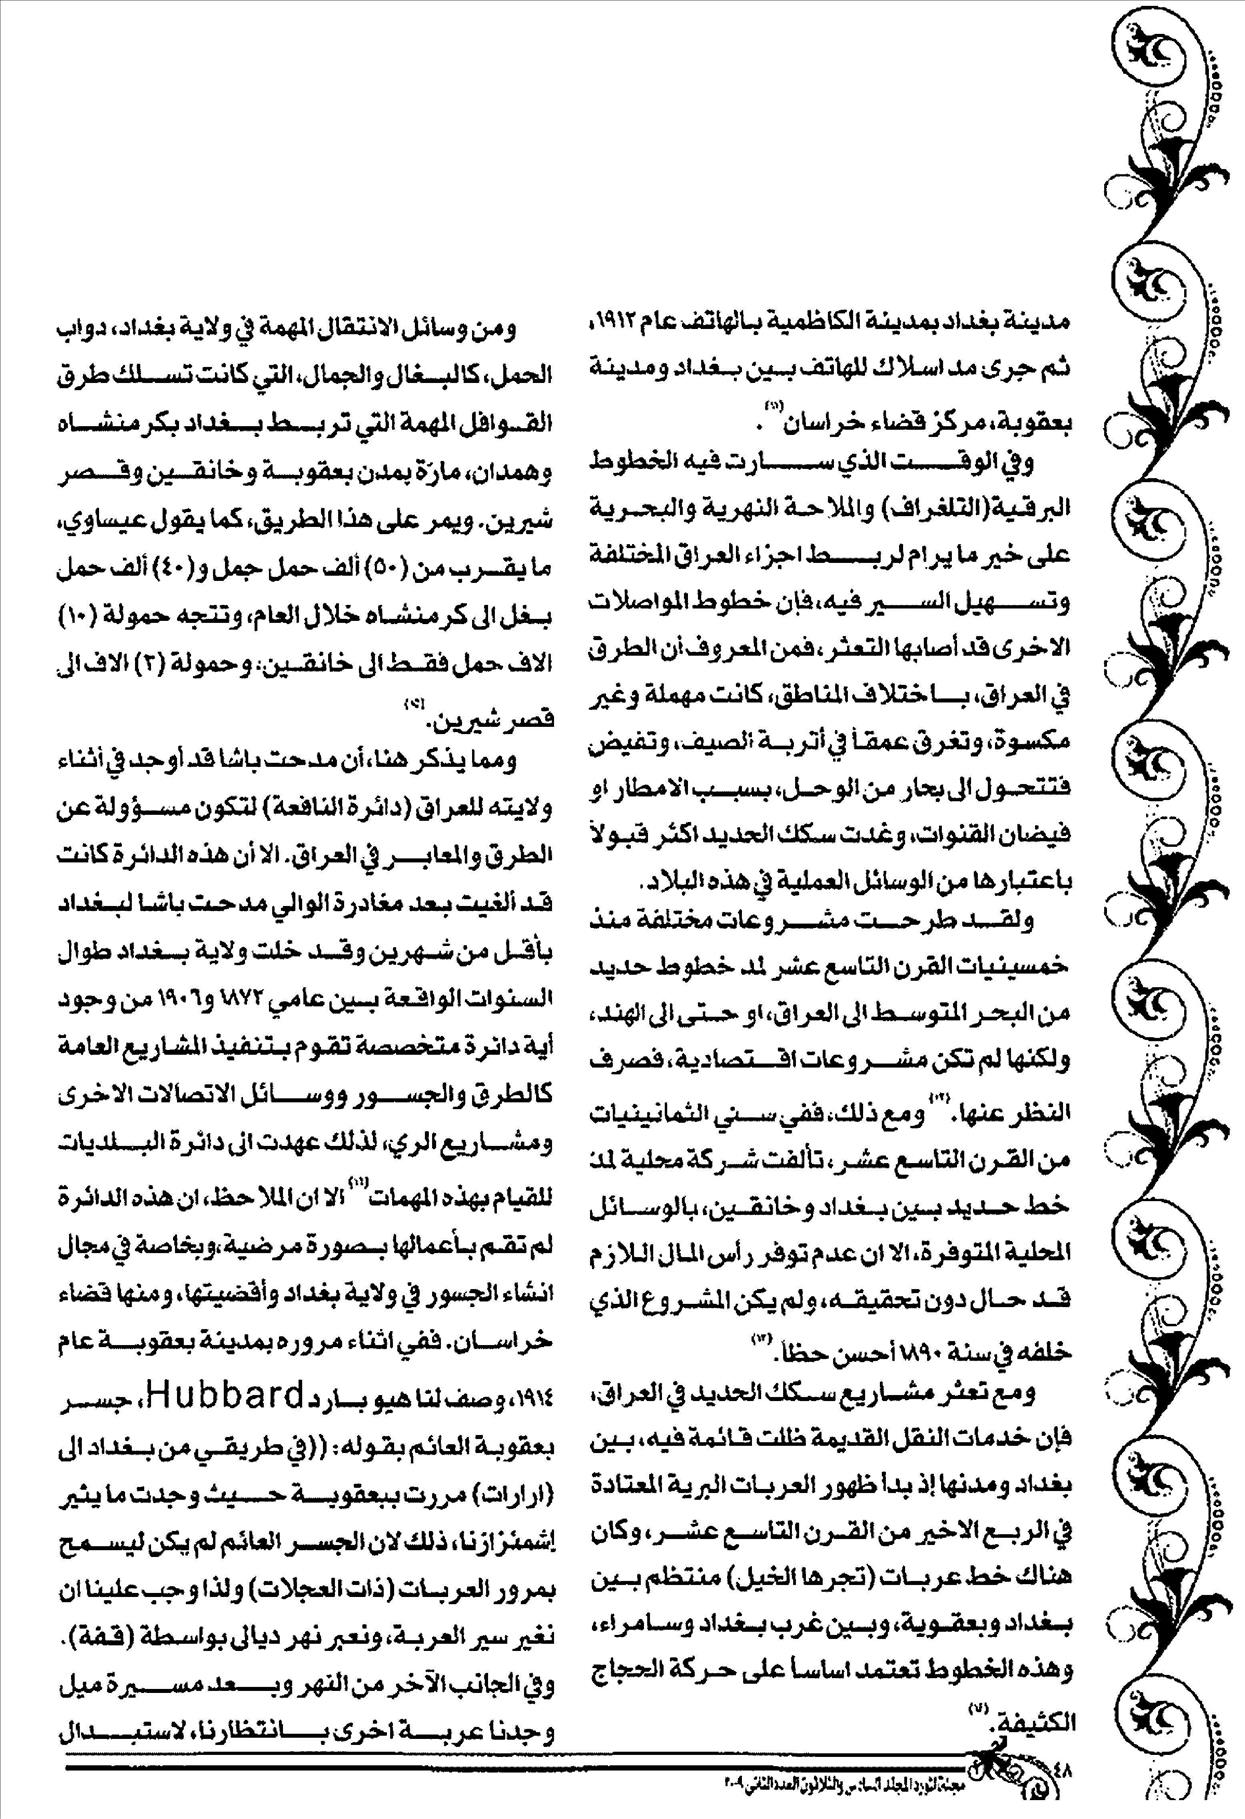 مدينة بغداد بمدينة الكاظمية بالهاتف عام ١٩١٢،
ثم جرى مد اسلاك للهاتف بين بغداد ومدينة
بعقوبة، مركز قضاء خراسان(١١).
وفي الوقت الذي سارت فيه الخطوط
البرقية(التلغراف) والملاحة النهرية والبحرية
على خير ما يرام لربط اجزاء العراق المختلفة
وتسهيل السير فيه، فإن خطوط المواصلات
الاخرى قد أصابها التعثر، فمن المعروف أن الطرق
في العراق، باختلاف المناطق، كانت مهملة وغير
مكسوة، وتغرق عمقاً في أتربة الصيف، وتفيض
فتتحول الى بحار من الوحل، بسبب الامطار او
فيضان القنوات، وغدت سكك الحديد اكثر قبولاً
باعتبارها من الوسائل العملية في هذه البلاد.
ولقد طرحت مشروعات مختلفة منذ
خمسينيات القرن التاسع عشر لمد خطوط حديد
من البحر المتوسط الى العراق، او حتى الى الهند،
ولكنها لم تكن مشروعات اقتصادية، فصرف
النظر عنها.(١٢) ومع ذلك، ففي سني الثمانينيات
من القرن التاسع عشر، تألفت شركة محلية لمد
خط حديد بين بغداد وخانقين، بالوسائل
المحلية المتوفرة، الا ان عدم توفر رأس المال اللازم
قد حال دون تحقيقه، ولم يكن المشروع الذي
خلفه في سنة ١٨٩٠ أحسن حظاً.(١٣)
ومع تعثر مشاريع سكك الحديد في العراق،
فإن خدمات النقل القديمة ظلت قائمة فيه، بين
بغداد ومدنها إذ بدأ ظهور العربات البرية المعتادة
في الربع الاخير من القرن التاسع عشر، وكان
هناك خط عربات (تجرها الخيل) منتظم بين
بغداد وبعقوبة، وبين غرب بغداد وسامراء،
وهذه الخطوط تعتمد اساسا على حركة الحجاج
الكثيفة.(١٤)
ومن وسائل الانتقال المهمة في ولاية بغداد، دواب
الحمل، كالبغال والجمال، التي كانت تسلك طرق
القوافل المهمة التي تربط بغداد بكرمنشاه
وهمدان، مارّة بمدن بعقوبة وخانقين وقصر
شيرين. ويمر على هذا الطريق، كما يقول عيساوي،
ما يقرب من (٥٠) ألف حمل جمل و(٤٠) ألف حمل
بغل الى كرمنشاه خلال العام، وتتجه حمولة (١٠)
الاف حمل فقط الى خانقين، وحمولة (٢) الاف الى
قصر شيرين.(١٥)
ومما يذكر هنا، أن مدحت باشا قد أوجد في أثناء
ولايته للعراق (دائرة النافعة) لتكون مسؤولة عن
الطرق والمعابر في العراق. الا أن هذه الدائرة كانت
قد ألغيت بعد مغادرة الوالي مدحت باشا لبغداد
بأقل من شهرين وقد خلت ولاية بغداد طوال
السنوات الواقعة بين عامي ١٨٧٢ و١٩٠٦ من وجود
أية دائرة متخصصة تقوم بتنفيذ المشاريع العامة
كالطرق والجسور ووسائل الاتصالات الاخرى
ومشاريع الري، لذلك عهدت الى دائرة البلديات
للقيام بهذه المهمات(١٦) الا ان الملاحظ، ان هذه الدائرة
لم تقم بأعمالها بصورة مرضية، وبخاصة في مجال
انشاء الجسور في ولاية بغداد وأقضيتها، ومنها قضاء
خراسان. ففي اثناء مروره بمدينة بعقوبة عام
١٩١٤، وصف لنا هيو بارد Hubbard، جسر
بعقوبة العائم بقوله: ((في طريقي من بغداد الى
(ارارات) مررت ببعقوبة حيث وجدت ما يثير
إشمئزازنا، ذلك لان الجسر العائم لم يكن ليسمح
بمرور العربات (ذات العجلات) ولذا وجب علينا ان
نغير سير العربة، ونعبر نهر ديالى بواسطة (قفة).
وفي الجانب الآخر من النهر وبعد مسيرة ميل
وجدنا عربة اخرى بانتظارنا، لاستبدال
٤٨
مجلة المورد المجلد السادس والثلاثون العدد الثاني ٢٠٠٩